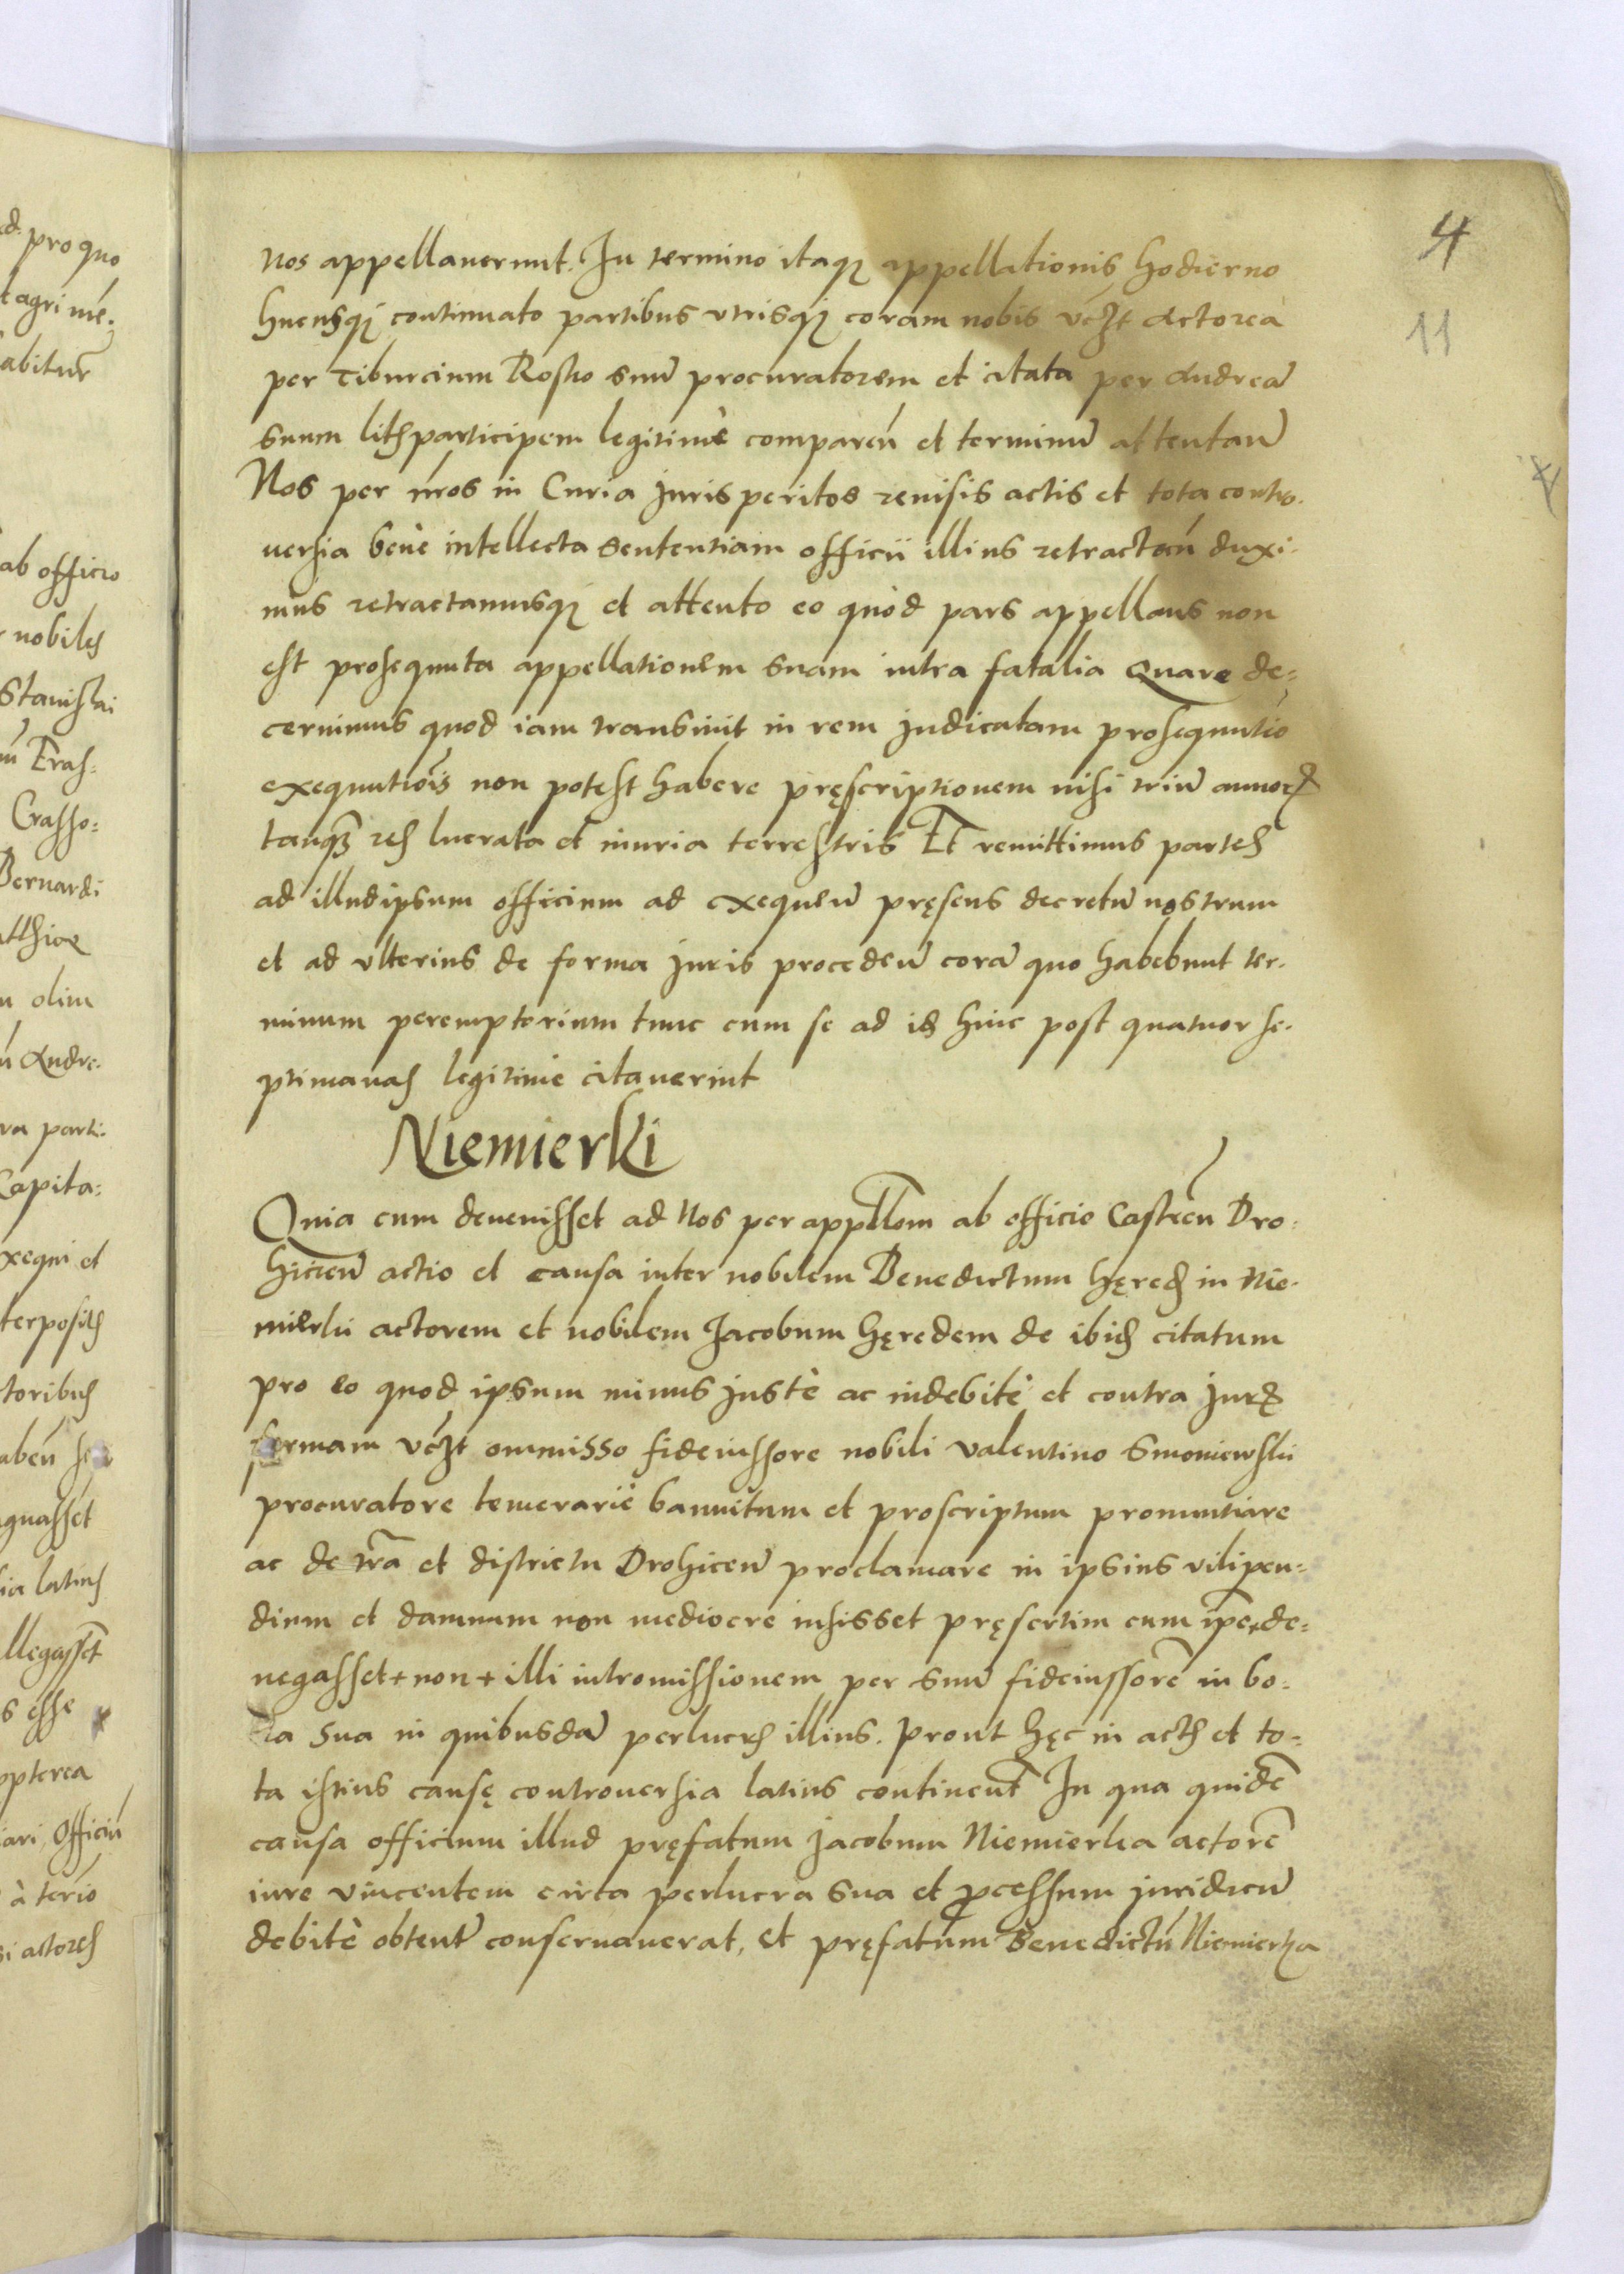 4
11
nos appellaverunt. In termino itaq3 appellationis hodierno
hucusq3 continuato partibus utrisq3 coram nobis vczt Actorea
per Tiburcium Rosko suu̅ procuratorem et citata per Andrea̅
suum litisparticipem legitimè comparen̅ et terminu̅ attentan̅
Nos per nr̅os in Curia Juris peritos revisis actis et tota contro-
versia benè intellecta sententiam officii illius retractan̅ duxi-
mus retractamusq3 et attento eo quòd pars appellans non
est prosequuta appellationem suam intra fatalia Quare de=
cernimus quod iam transivit in rem judicatam prosequutio
exequutio̅is non potest habere pręscriptionem nisi triu̅ annorꝝ
tanq̅3 res lucrata et iniuria terrestris Et remittimus partes
ad illudipsum officium ad exequen̅ pręsens decretu̅ nostrum
et ad ulterius de forma juris proceden̅ cora̅ quo habebunt ter-
minum peremptorium tunc cum se ad id hinc post quatuor se-
ptimanas legitimè citaverint
Niemierki
Quia cum devenisset ad Nos per appllo̅m ab officio Castren̅ Dro=
hicien̅ actio et causa inter nobilem Benedictum hęred in Nie-
mierki actorem et nobilem Jacobum hęredem de ibid citatum
pro eo quod ipsum minus justè ac indebitè et contra jurꝭ
formam vczt ommisso fideiussore nobili Valentino Smoniewski
procuratore temerariè bannitum et proscriptum pronuntiare
ac de tr̅a et districtu Drohicen̅ proclamare in ipsius vilipen=
dium et damnum non mediocre insisset pręsertim cum ip̅e de=
negasset + non + illi intromissionem per suu̅ fideiussore̅ in bo=
na sua in quibusda̅ perlucris illius. Prout hęc in actis et to=
ta istius causę controversia latius continent̅ In qua quide̅
causa officium illud pręfatum Jacobum Niemierka actore̅
iure vincentem circa perlucra sua et ꝓcessum juridicu̅
debitè obtent̅ conservaverat, et pręfatum Benedictu̅ Niemierka